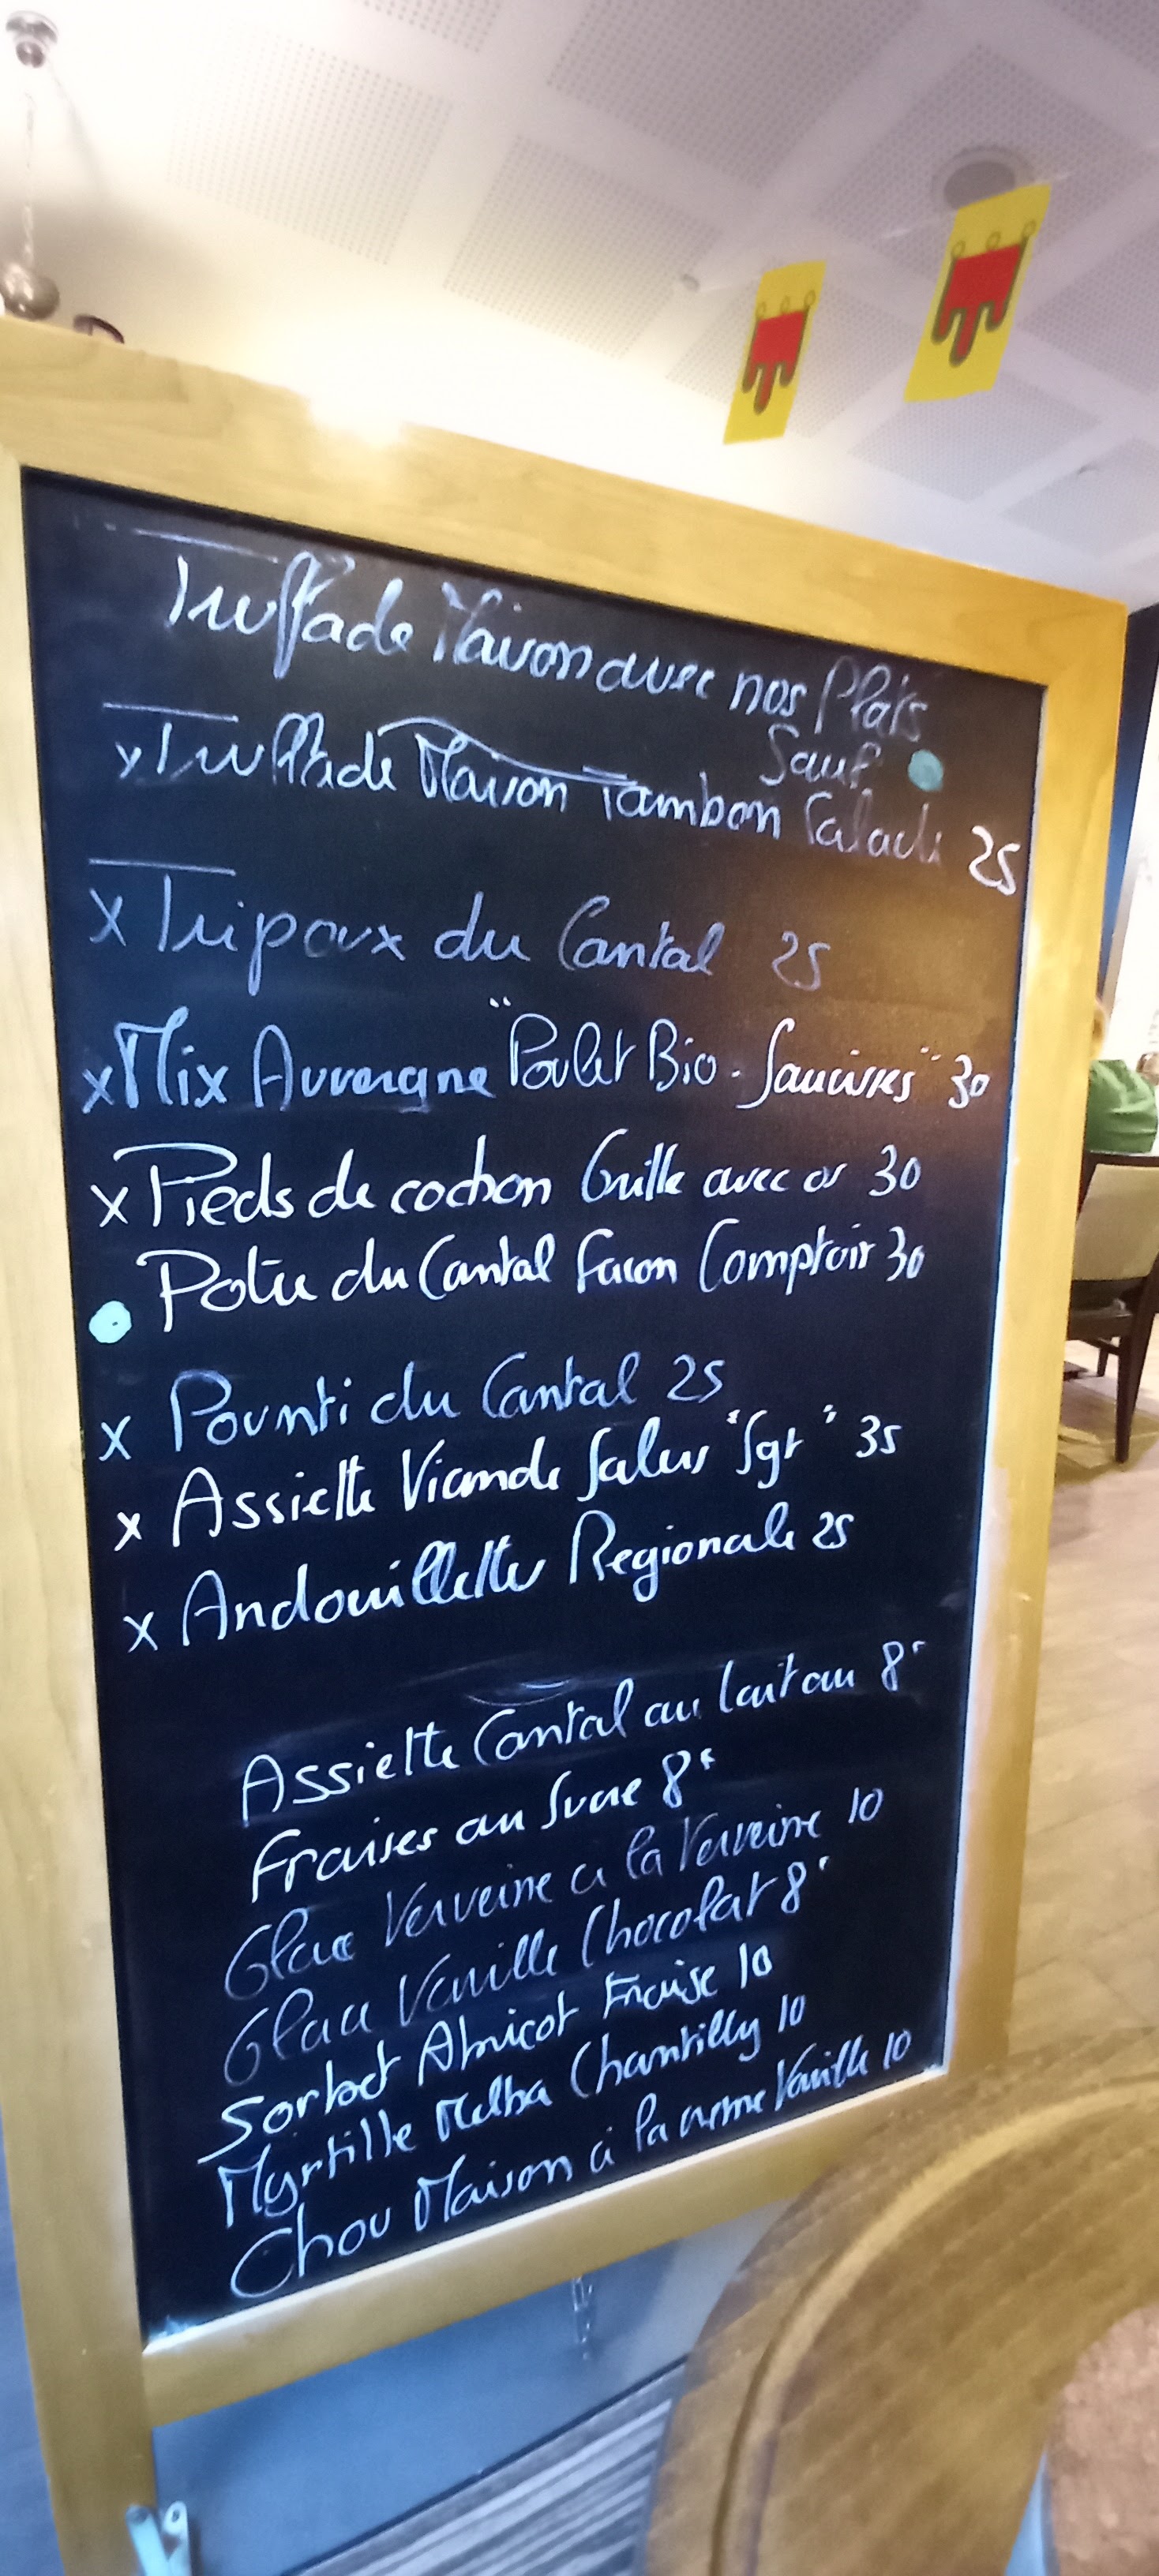 Truffade Maison avec nos Plats
Sauf
x Truffade Maison Jambon Salade 25
x Tripoux du Cantal 25
x Mix Auvergne "Poulet Bio - Saucisses" 30
x Pieds de cochon Grille avec os 30
Potée du Cantal facon Comptoir 30
x Pounti du Cantal 25
x Assiette Viande Salers "Sgt" 35
x Andouillette Regionale 25
Assiette Cantal au Lait cru 8€
Fraises au Sucre 8€
Glace Verveine a la Verveine 10
Glace Vanille Chocolat 8€
Sorbet Abricot Fraise 10
Myrtille Melba Chantilly 10
Chou Maison a la creme Vanille 10